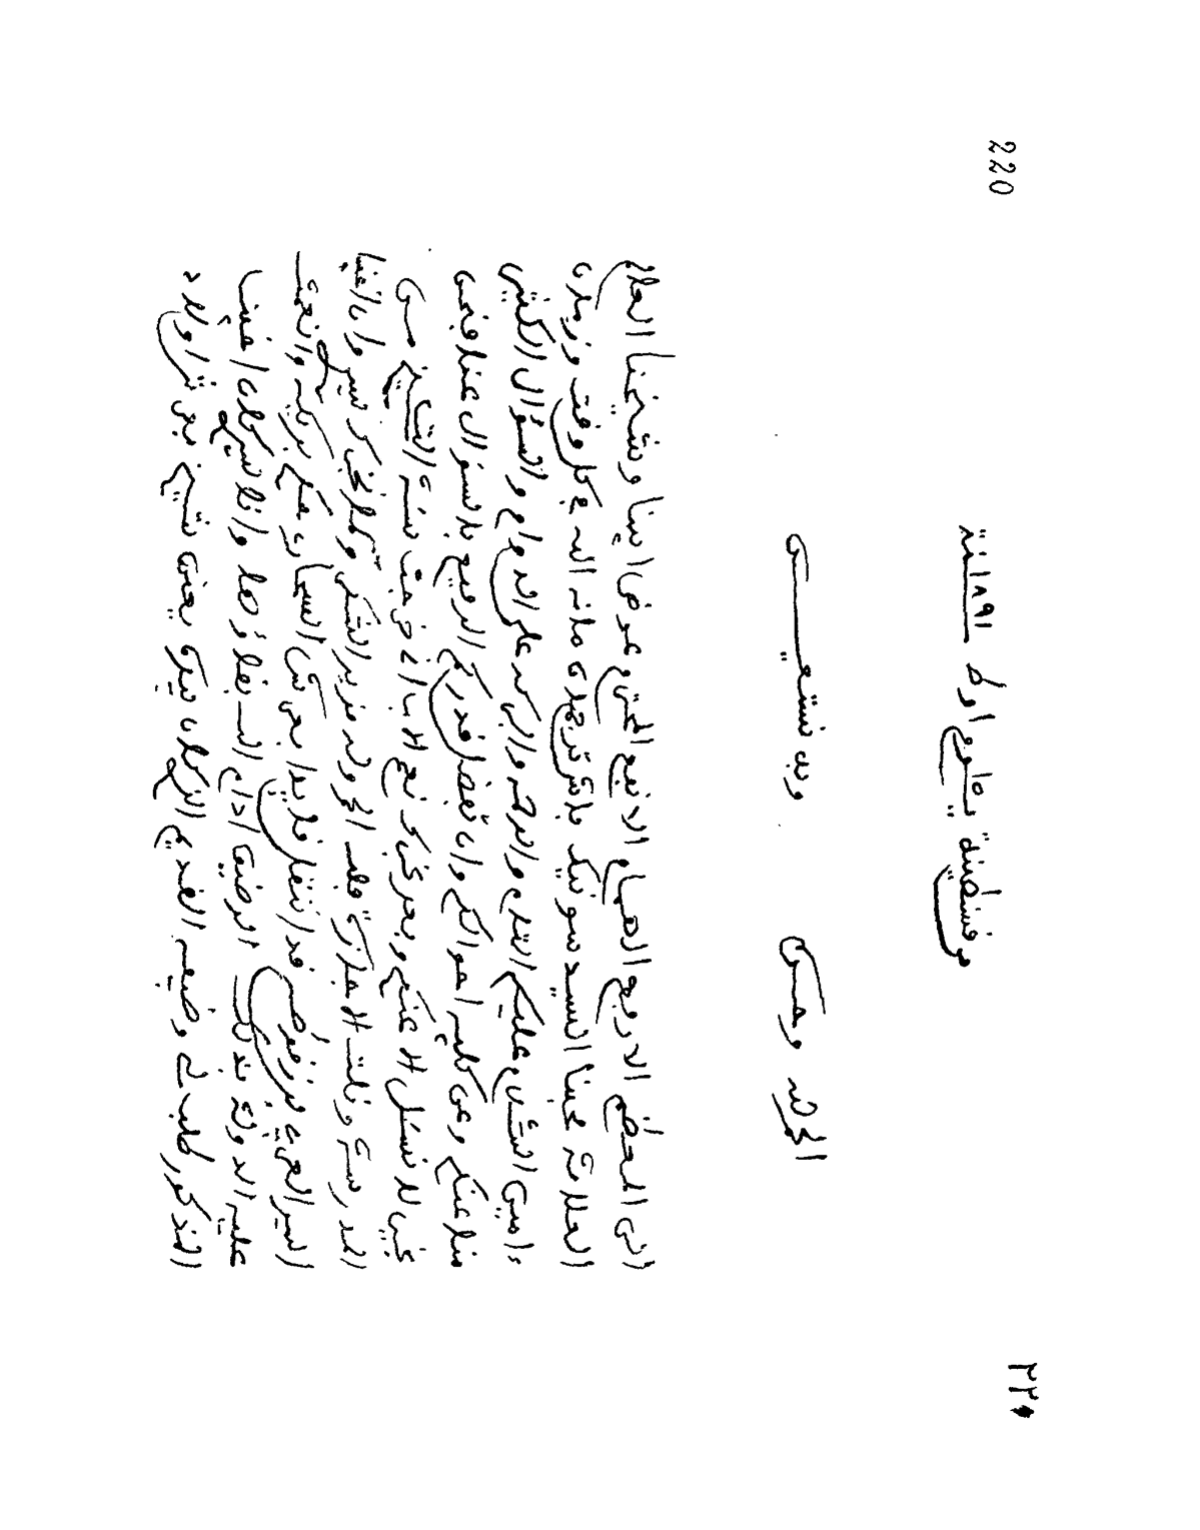 220
٢٢٠
من قسنطينة يـ اوط ١٨٩١ سنة
الحمد لله وحده وبه نستعين
الى المعظم الارفع الهمام الانفع المحترم عوض ابينا وشيخنا العالم
العلامة محبنا السيد سونيك باش ترجمان ملنه الله في كل وقت وزمان
ءامين السلام عليكم التام والرحمة والبركة على الدوام والسؤال الكثير
منا عنكم وعن كلية احوالكم وان تفضل قدركم الرفيع بالسؤال عنا فنحن
بخير لا نسئل الا عنكم وبعد نخبركم نعم الاب اني خرجت من الشيخ من
المدرسة ونلت الاجازة فلله الحمد وله مزيد الشكر كما نخبرك سيدي وان اخينا
السيد العربي بن قد انتقل من السمارة ببركتكم وانعمت
عليه الدولة بذلك المرضية ادام الله بقاؤها وانا سيدي كان اخينا
المذكور طلب لي وضيعه القديم الذي كان فيه يعني شيخ في اولاد